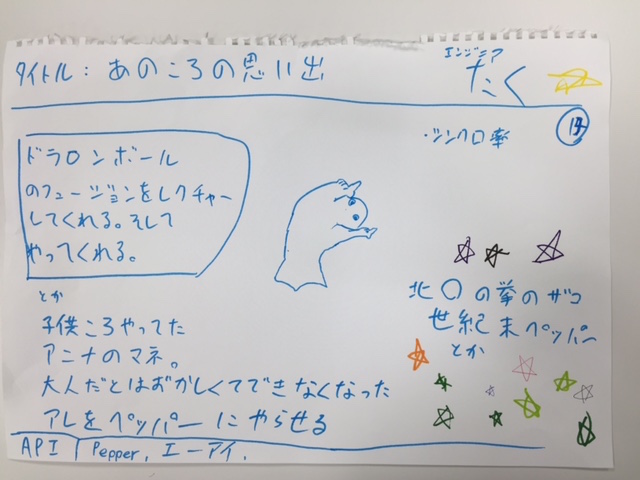 エンジニア
タイトル：あのころの思い出
たく
・シンクロ率
ドラ〇ンボール
のフュージョンをレクチャー
してくれる。そして
やってくれる。
とか
子供ころやってた
アニナのマネ。
大人だとはおかしくてできなくなった
アレをペッパーにやらせる
北〇の拳のザコ
世紀末ペッパー
とか
API
Pepper, エーアイ.